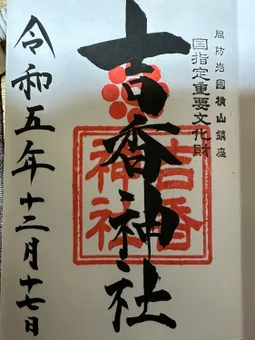 周防岩國横山鎮座
国指定重要文化財
吉香神社
吉香神社
令和五年十二月十七日